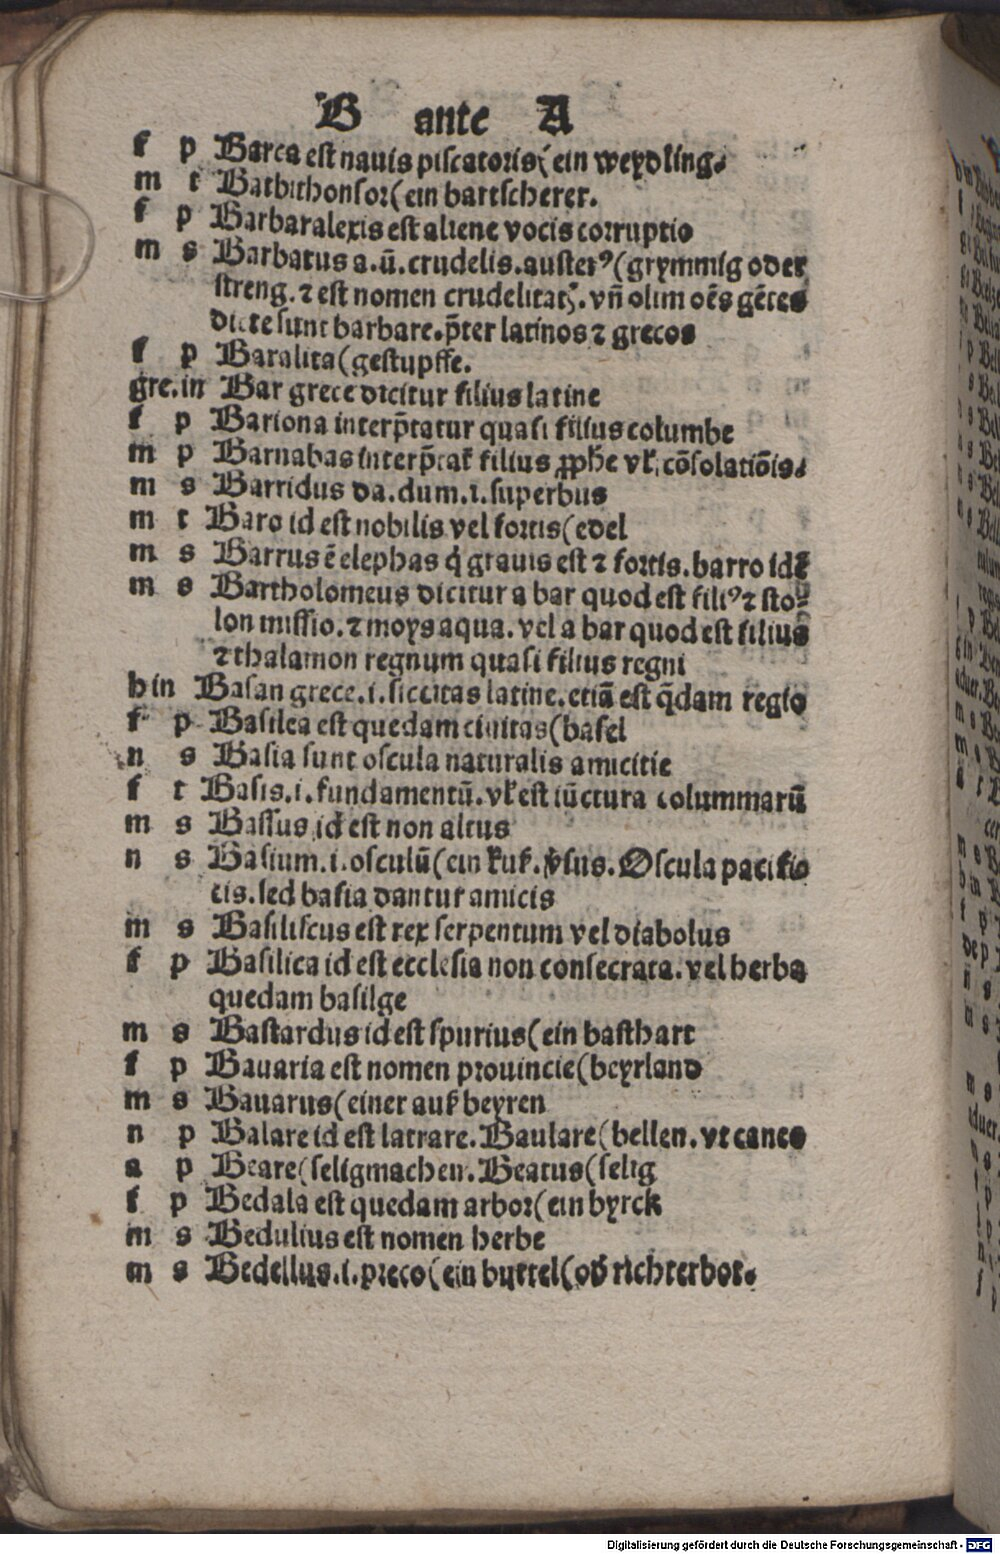 B ante A
f p Barca est nauis piscatoris( ein weydling.
m t Barbithonsor( ein bartscherer.
f p Barbaralexis est aliene vocis corruptio
m s Barbarus a.ū. crudelis.austerꝰ( grymmig oder
streng. ⁊ est nomen crudelitatꝭ. vñ olim oēs gētes
dicte sunt barbare. p̄ter latinos ⁊ grecos
f p Baralita( gestupffe.
gre.in Bar grece dicitur filius latine
f p Bariona interp̄tatur quasi filius columbe
m p Barnabas interp̄tat᷑ filius ꝓphe vl᷑ cōsolatiōis.
m s Barridus da.dum.i.superbus
m t Baro id est nobilis vel fortis( edel
m s Barrus ē elephas q̇ grauis est ⁊ fortis. barro idē
m s Bartholomeus dicitur a bar quod est filiꝰ ⁊ sto-
lon missio. ⁊ moys aqua. vel a bar quod est filius
⁊ thalamon regnum quasi filius regni
h in Basan grece.i.siccitas latine. etiā est q̄dam regio
f p Basilea est quedam ciuitas( basel
n s Basia sunt oscula naturalis amicitie
f t Basis.i.fundamentū. vl᷑ est iūctura colummarū
m s Bassus id est non altus
n s Basium.i.osculū( ein kuß. v̓sus. Oscula pacifi
cis. sed basia dantur amicis
m s Basiliscus est rex serpentum vel diabolus
f p Basilica id est ecclesia non consecrata. vel herba
quedam basilge
m s Bastardus id est spurius( ein basthart
f p Bauaria est nomen prouincie( beyrland
m s Bauarus( einer auß beyren
n p Balare id est latrare. Baulare( bellen. vt canes
a p Beare( seligmachen. Beatus( selig
f p Bedala est quedam arbor( ein byrck
m s Bedulius est nomen herbe
m s Bedellus.i.preco( ein buttel( od̓ richterbot.
Digitalisierung gefördert durch die Deutsche Forschungsgemeinschaft - DFG